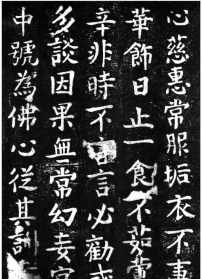 心慈惠常服垢衣不事
華飾日止一食不茹葷
辛非時不言言必勸戒
多談因果無常幻妄
中號為佛心從其訓